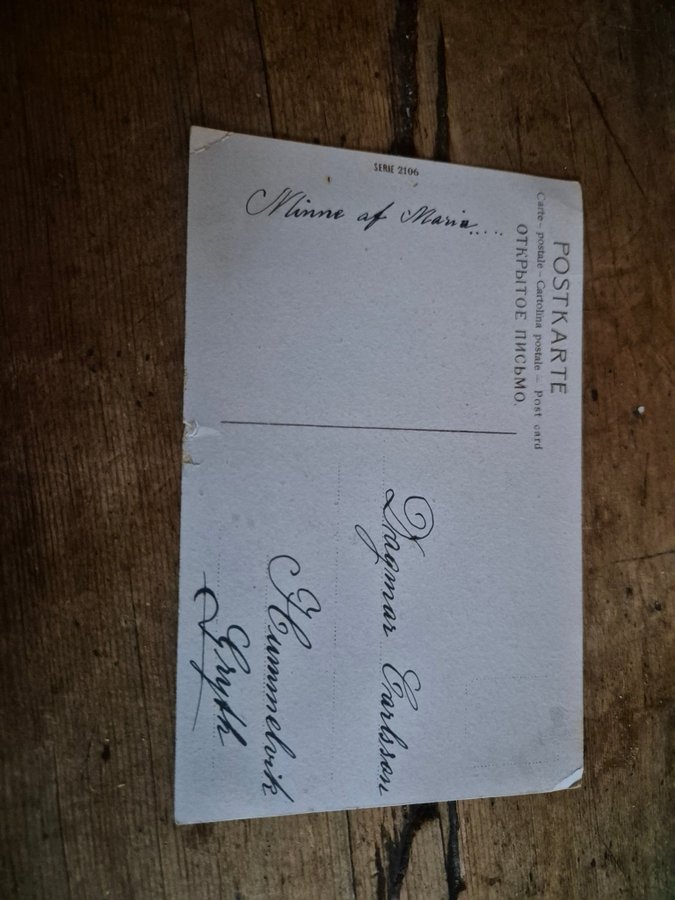 POSTKARTE
Carte - postale - Cartolina postale - Post card
ОТКРЫТОЕ ПИСЬМО.
SERIE 2106
Minne af Maria....
Dagmar Carlsson
Hummelvik
Gryth